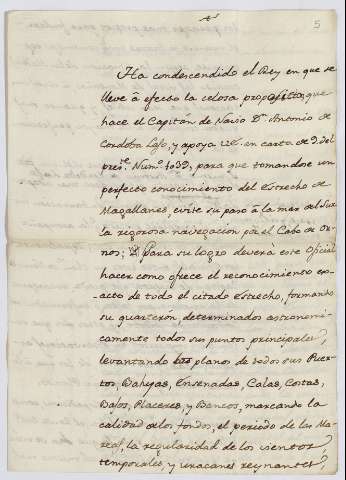 5
Ha condescendido el Rey en que se
lleve á efecto la celosa proposicion, que
hace el Capitán de Navio Dn. Antonio de
Cordoba Laso, y apoya V.E. en carta de 9. del
preste. Numo. 1039, para que tomandose un
perfecto conocimiento del Estrecho de
Magallanes, evite su paso á la mar del Sur
la rigorosa navegacion por el Cabo de Or-
nos; Para su logro deverá este Oficial
hacer como ofrece el reconocimiento ex-
acto de todo el citado Estrecho, formando
su quarterón, determinados astronomi-
camente todos sus puntos principales,
levantando los planos de todos sus Puer-
tos Bahyas, Ensenadas, Calas, Costas,
Bajos, Placeres, y Bancos, marcando la
calidad de los fondos, el periodo de las Ma-
reas, la regularidad de los vientos,
temporales, y uracanes reynantes,